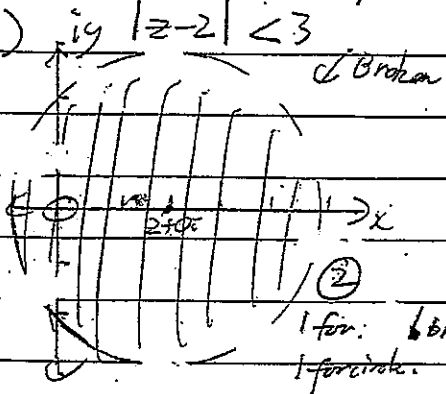 ) iy |z-2| < 3
Broken
2+0i x
②
1 for:
1 for circle.